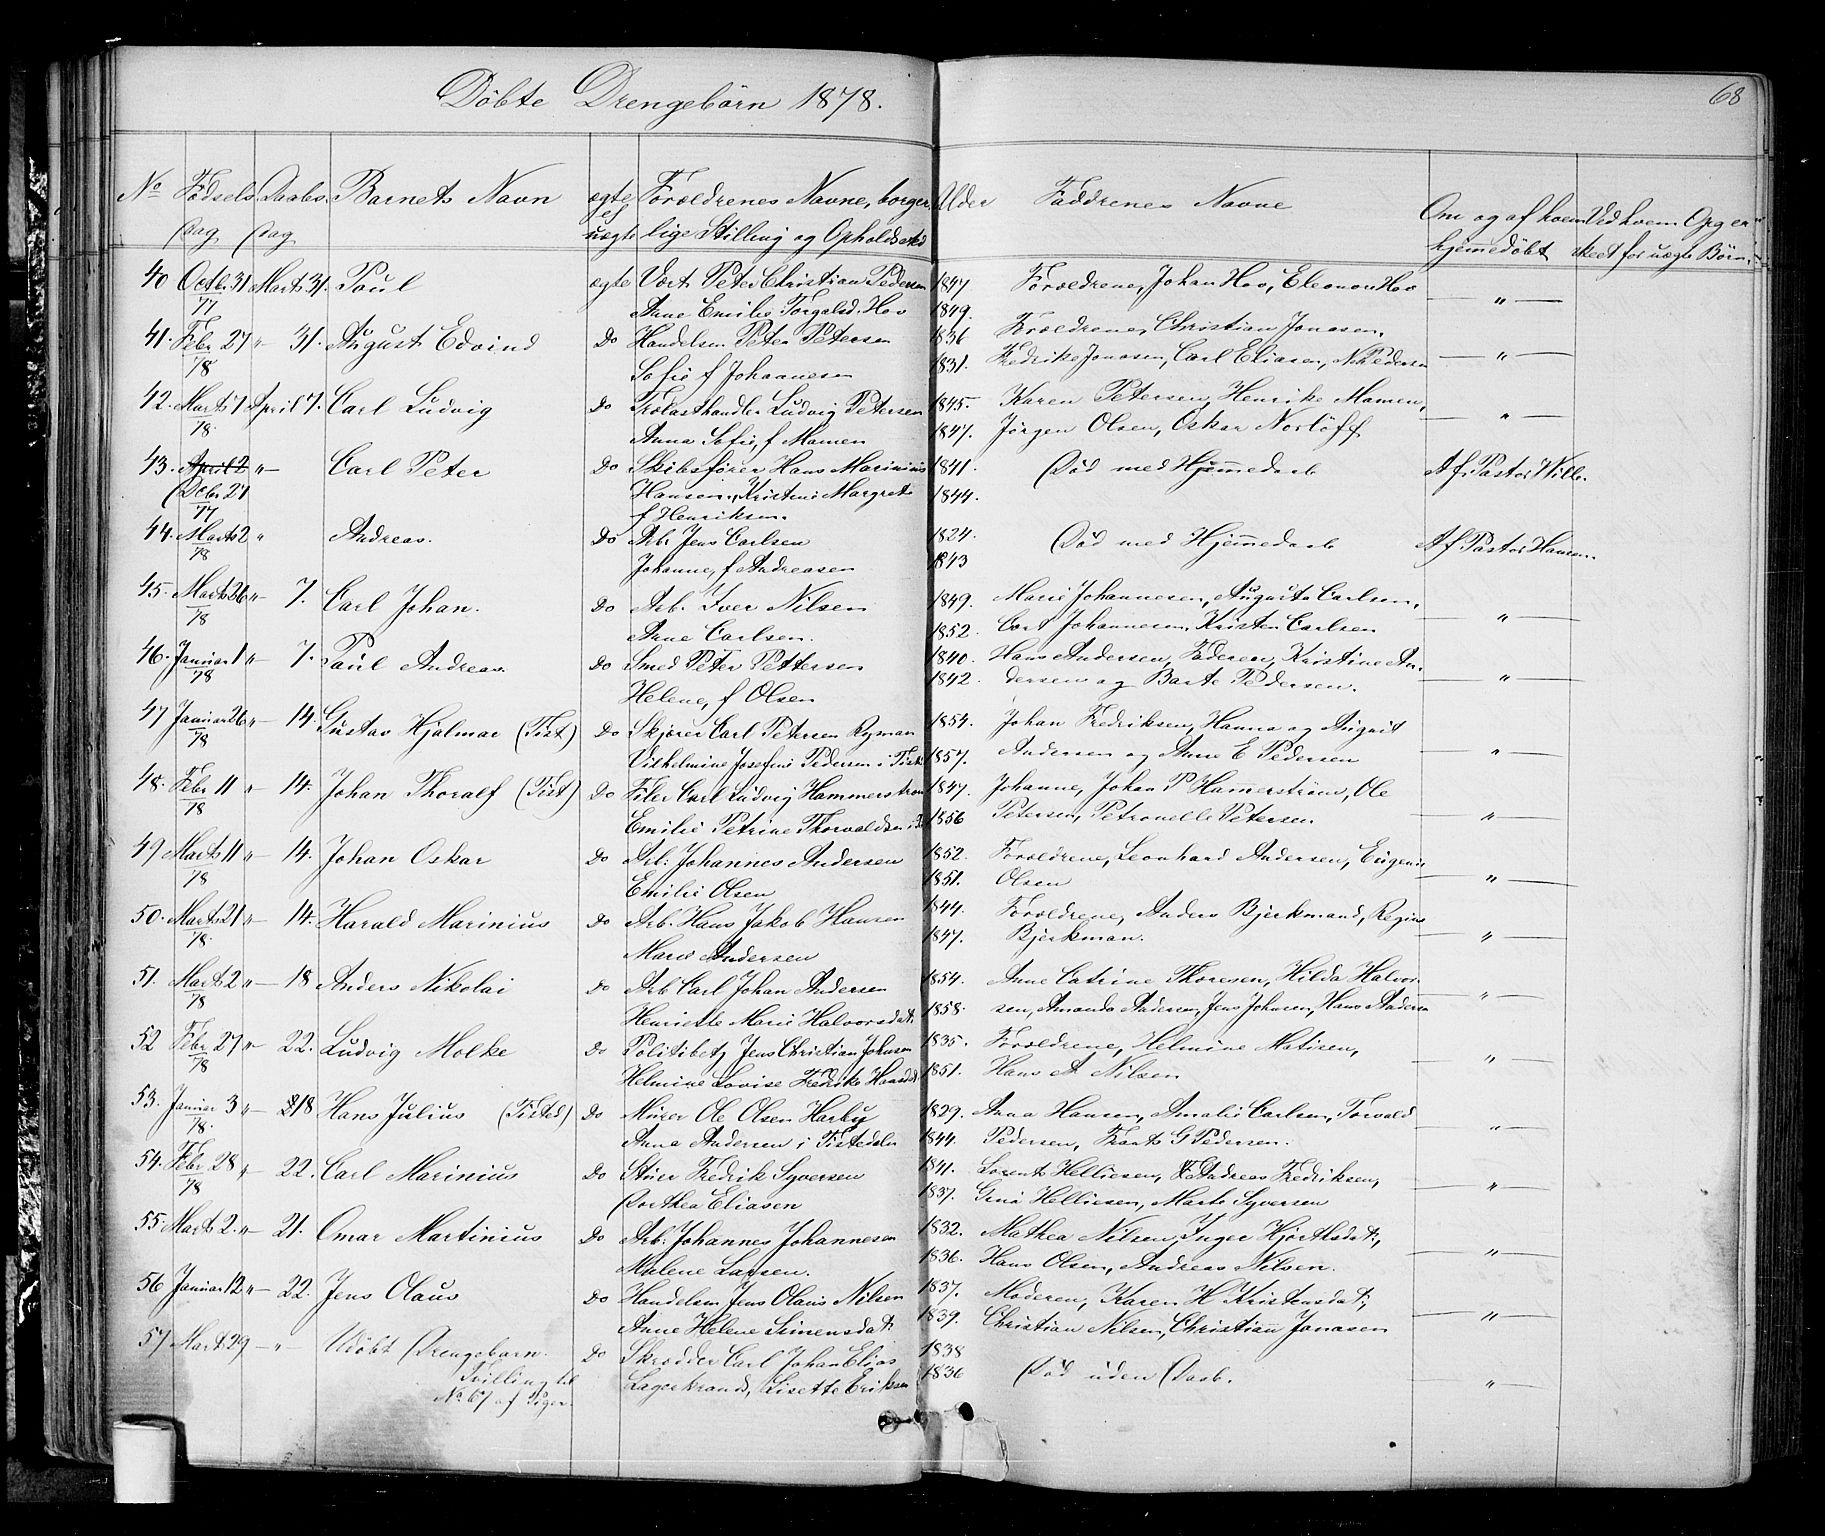 Döbte Drengebörn 1878.
68
No Födsels Daabs Barnets Navn ægte Forældrenes Navne, borger Alder Faddrenes Navne Om og af hvem Ved hvem Opg er
dag dag el uægte lige Stilling og Opholdssted hjemmedöbt skeet for uægte Börn
40 Octbr 31 Marts 31. Paul ægte Vært Peter Christian Pedersen 1847 Forældrene, Johan Hov, Eleonor Hov — " —
77 Anne Emilie Torgalsd. Hov 1849.
41. Febr 27 " 31. August Edvind Do Handelsm Peter Petersen 1836 Forældrene, Christian Jonasen,
78 Sofie f Johannesen 1831. Fredrike Jonasen, Carl Eliasen, N Pedersen — " —
42. Marts 7 April 7. Carl Ludvig Do Trælasthandler Ludvig Petersen 1845. Karen Petersen, Henrike Mamen,
78. Anna Sofie, f Mamen 1847. Jörgen Olsen, Oskar Norlöff — " —
43. April 2 " — Carl Peter Do Skibsförer Hans Marinius 1841. Död med Hjemmedaab Af Pastor Wille.
Decbr 27 Hansen, Kristine Margrete 1844.
77 f Henriksen.
44. Marts 2 " Andreas. Do Arb Jens Carlsen 1824. Död med Hjemmedaab Af Pastor Hansen.
78 Johanne, f Andreasen 1843
45. Marts 26 " — 7. Carl Johan. Do Arb. Iver Nilsen 1849. Marie Johannesen, Augusta Carlsen,
78 Anne Carlsen. 1852. Carl Johannesen, Kristen Carlsen — " —
46. Januar 1 " — 7. Paul Andreas. Do Smed Peter Pettersen 1840. Hans Andersen, Faderen, Kristine An-
78 Helene, f Olsen 1842. dersen og Barte Pedersen. — " —
47 Januar 26 " — 14. Gustav Hjalmar (Tist) Do Skjörer Carl Petersen Ryman 1854. Johan Fredriksen, Hanna og August
78 Vilhelmine Josefine Pedersen i Tist 1857. Andersen og Anne E Pedersen — " —
48. Febr 11 " — 14. Johan Thoralf (Tist) Do Filer Carl Ludvig Hammerström 1847. Johanne, Johan P Hamerström, Ole
78 Emilie Petrine Thorvaldsen 1856 Petersen, Petronelle Petersen — " —
49 Marts 11 " — 14. Johan Oskar Do Arb: Johannes Andersen 1852. Forældrene, Leonhard Andersen, Eugenie
78 Emilie Olsen 1851. Olsen — " —
50. Marts 21 " — 14. Harald Marinius Do Arb. Hans Jakob Hansen 1844. Forældrene, Anders Bjerkmand, Regine
78. Marie Andersen 1847. Bjerkman. — " —
51. Marts 2 " — 18 Anders Nikolai Do Arb Carl Johan Andersen 1854. Anne Catrine Thoresen, Hilda Halvor-
78 Henriette Marie Halvorsdat: 1858. sen, Amanda Andersen, Jens Johnsen, Hans Andersen — " —
52 Febr 27 " — 22. Ludvig Molke Do Politibetj Jens Christian Johnsen 1835. Forældrene, Helmine Matisen,
78 Helmine Lovise Fredrike Hansdat 1851. Hans A Nilsen — " —
53. Januar 3 " — 18 Hans Julius (Tisted) Do Murer Ole Olsen Harby 1829. Anna Hansen, Amalie Carlsen, Torvald
78. Anna Andersen i Tistedalen 1844. Pedersen, Frants G Pedersen. "
54. Febr 28 " 22. Carl Marinius Do Stuer Fredrik Syversen 1841. Lorents Helliesen, Andreas Fredriksen,
78 Dorthea Eliasen 1837. Gina Helliesen, Marte Syversen — " —
55. Marts 2. " — 21. Omar Martinius Do Arb: Johannes Johannesen 1832. Mathea Nilsen, Inger Hjorthsdat:,
Malene Larsen. 1836. Hans Olsen, Andreas Nilsen. — " —
56 Januar 12 " — 22. Jens Olaus Do Handelsm Jens Olaus Nilsen 1837. Moderen, Karen H Kristensdat:,
Anne Helene Simensdat: 1839. Christian Nilsen, Christian Jonasen — " —
57 Marts 29 — " — Udöbt Drengebarn. Do Skrædder Carl Johan Elias 1838
Tvilling til Lagerstrand, Lisette Eriksen 1836 Död uden Daab. — " —
No 67 af Piger.